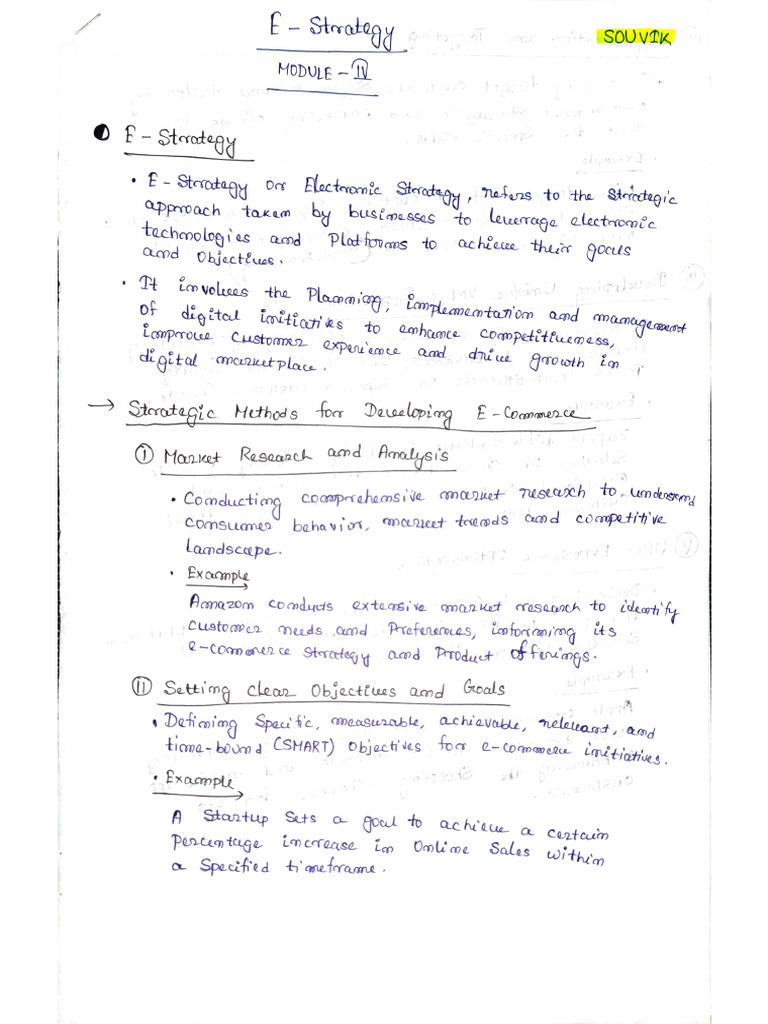 E - Strategy
SOUVIK
MODULE - IV
E - Strategy
• E - Strategy or Electronic Strategy, refers to the strategic
approach taken by businesses to leverage electronic
technologies and Platforms to achieve their goals
and Objectives.
• It involves the Planning, implementation and management
of digital initiatives to enhance competitiveness,
improve customer experience and drive growth in
digital marketplace.
→ Strategic Methods for Developing E-Commerce
I Market Research and Analysis
• Conducting comprehensive market research to understand
consumer behavior, market trends and competitive
Landscape.
• Example
Amazon conducts extensive market research to identify
customer needs and Preferences, informing its
e-commerce strategy and Product Offerings.
II Setting Clear Objectives and Goals
• Defining Specific, measurable, achievable, relevant, and
time-bound (SMART) Objectives for e-commerce initiatives.
• Example
A Startup Sets a goal to achieve a certain
Percentage increase in Online Sales within
a Specified timeframe.